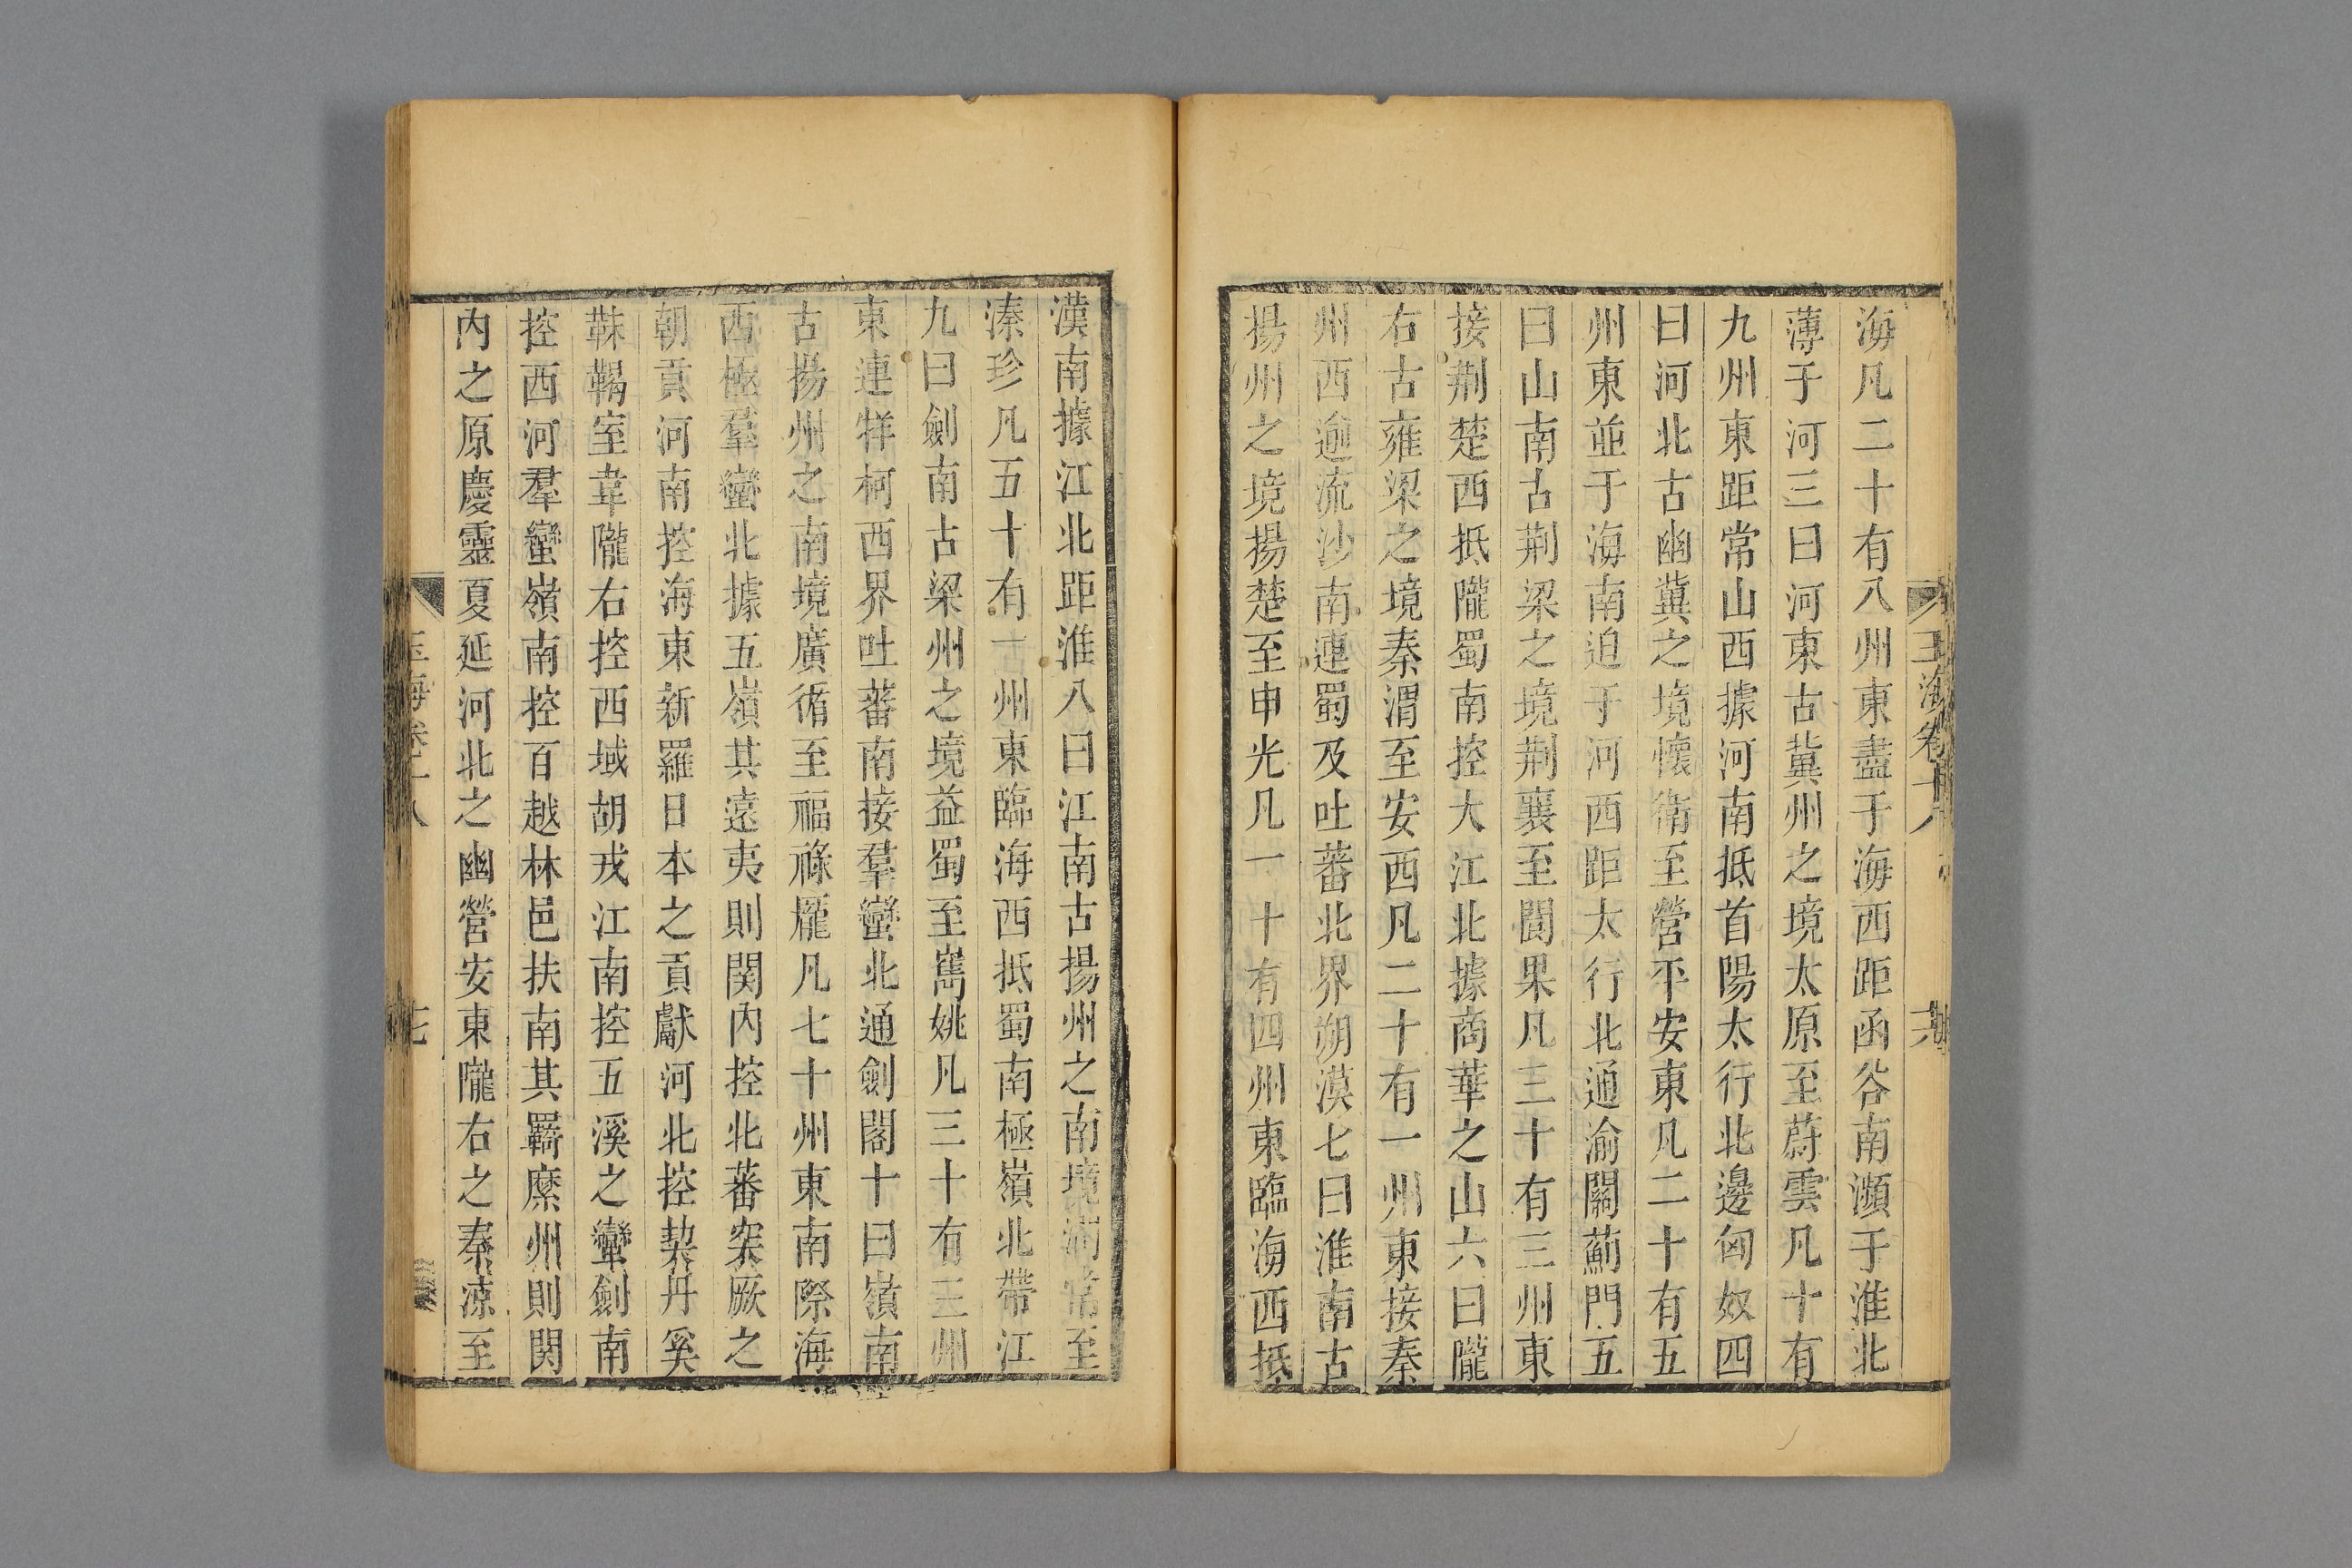 海凡二十有八州東盡于海西距函谷南瀕于淮北
薄于河三曰河東古冀州之境太原至蔚雲凡十有
九州東距常山西據河南抵首陽太行北邊匈奴四
曰河北古幽冀之境懷衛至營平安東凡二十有五
州東並于海南迫于河西距太行北通渝關薊門五
曰山南古荆梁之境荆襄至閬果凡三十有三州東
接荆楚西抵隴蜀南控大江北據商華之山六曰隴
右古雍梁之境秦渭至安西凡二十有一州東接秦
州西逾流沙南連蜀及吐蕃北界朔漠七曰淮南古
揚州之境揚楚至申光凡一十有四州東臨海西抵
玉海卷十八
漢南據江北距淮八曰江南古揚州之南境潤常至
溱珍凡五十有一州東臨海西抵蜀南極嶺北帶江
九曰劍南古梁州之境益蜀至巂姚凡三十有三州
東連牂柯西界吐蕃南接羣蠻北通劍閣十曰嶺南
古揚州之南境廣循至福祿龐凡七十州東南際海
西極羣蠻北據五嶺其遠夷則関內控北蕃突厥之
朝貢河南控海東新羅日本之貢獻河北控契丹奚
靺鞨室韋隴右控西域胡戎江南控五溪之蠻劍南
控西河羣蠻嶺南控百越林邑扶南其羈縻州則関
內之原慶靈夏延河北之幽營安東隴右之秦涼至
玉海卷十八
七